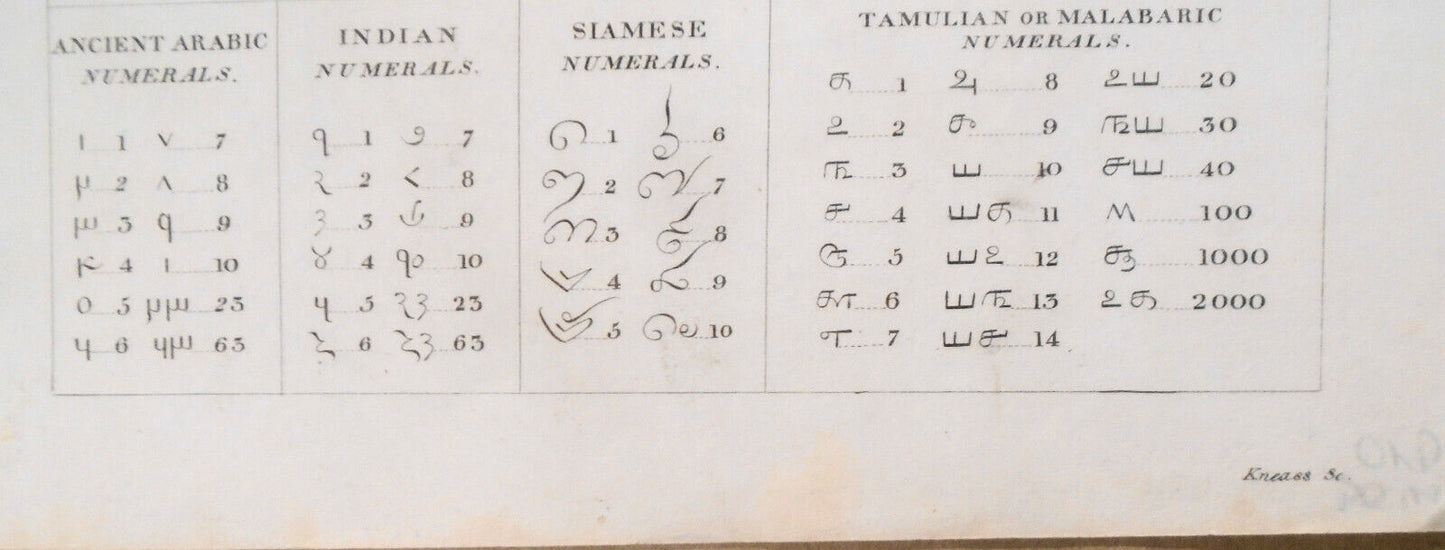 ANCIENT ARABIC
NUMERALS.
١ 1 ٧ 7
2 ٨ 8
3 9
4 ١ 10
5 23
6 63
INDIAN
NUMERALS.
१ 1 7
२ 2 8
३ 3 9
४ 4 १० 10
५ 5 २३ 23
६ 6 ६३ 63
SIAMESE
NUMERALS.
๑ 1 ๖ 6
๒ 2 ๗ 7
๓ 3 ๘ 8
๔ 4 ๙ 9
๕ 5 10
TAMULIAN OR MALABARIC
NUMERALS.
௧ 1 ௮ 8 ௨௰ 20
௨ 2 ௯ 9 ௩௰ 30
௩ 3 ௰ 10 ௪௰ 40
௪ 4 ௰௧ 11 ௱ 100
௫ 5 ௰௨ 12 ௲ 1000
௬ 6 ௰௩ 13 2000
௭ 7 ௰௪ 14
Kneass Sc.